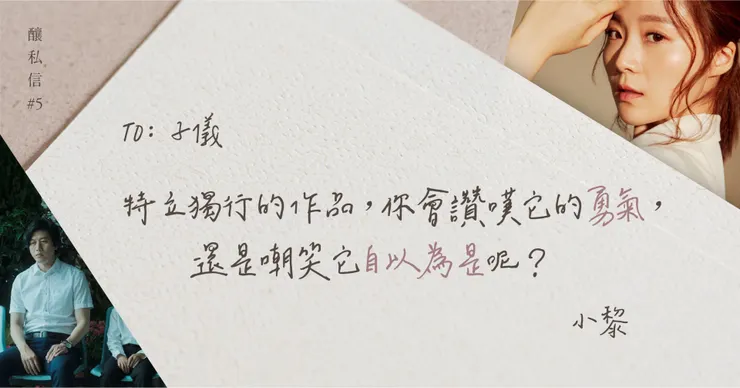 釀私信
#5
TO: 子儀
特立獨行的作品，你會讚嘆它的勇氣，
還是嘲笑它自以為是呢？
小黎